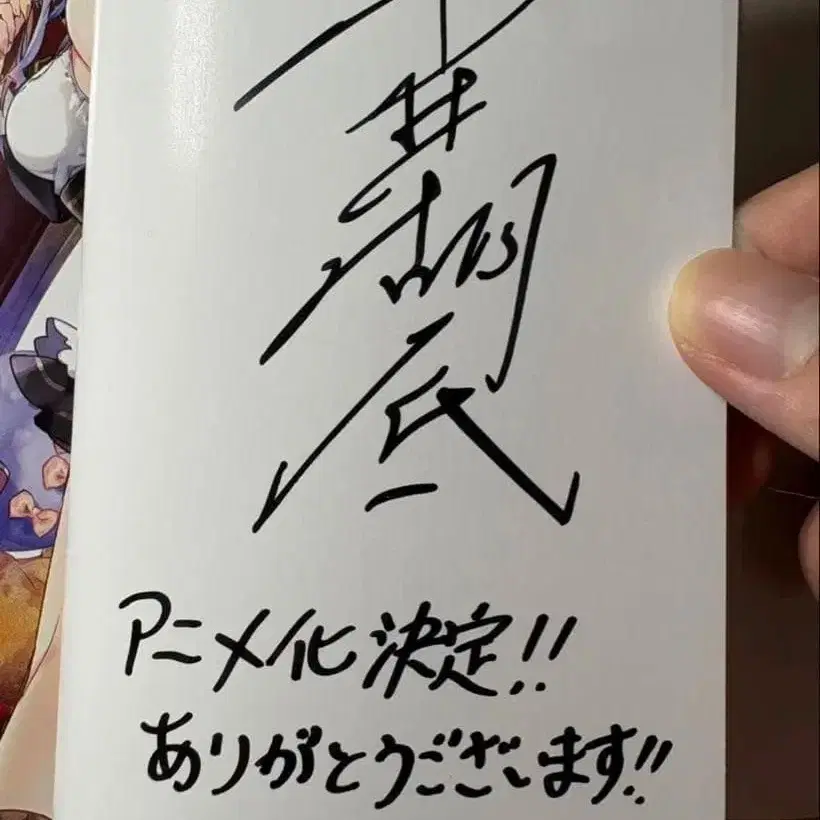 井
底
アニメ化決定!!
ありがとうございます!!